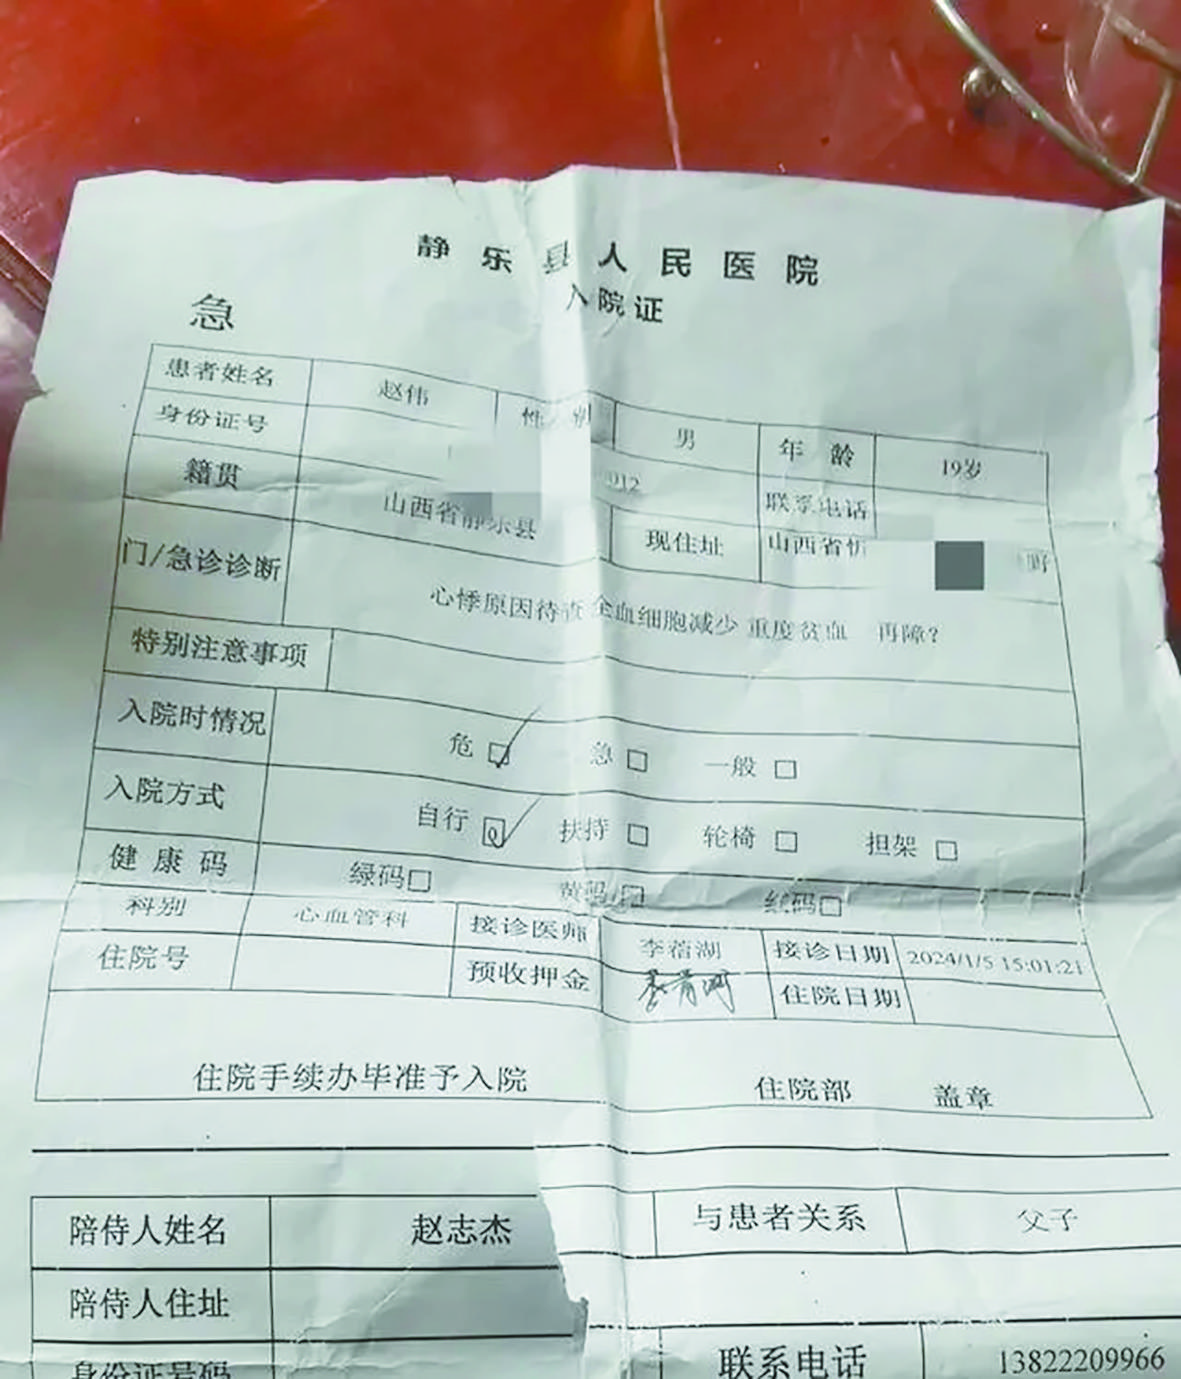 静乐县人民医院
急 入院证
患者姓名 赵伟 性别 男 年龄 19岁
身份证号 012 联系电话
籍贯 山西省静乐县 现住址 山西省忻 野
门/急诊诊断 心悸原因待查 全血细胞减少 重度贫血 再障?
特别注意事项
入院时情况 危☑ 急□ 一般□
入院方式 自行☑ 扶持□ 轮椅□ 担架□
健康码 绿码□ 黄码□ 红码□
科别 心血管科 接诊医师 李蓓湖 接诊日期 2024/1/5 15:01:21
住院号 预收押金 住院日期
住院手续办毕准予入院 住院部 盖章
陪侍人姓名 赵志杰 与患者关系 父子
陪侍人住址
身份证号码 联系电话 13822209966